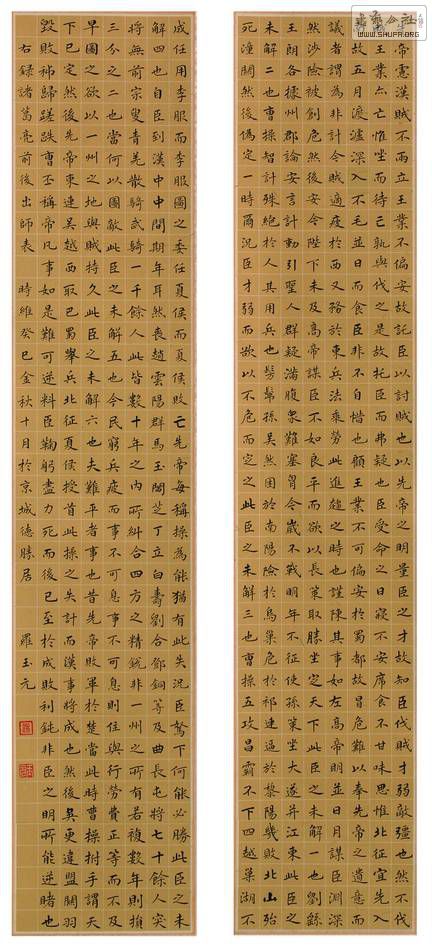 帝憲漢賊不兩立王業不偏安故託臣以討賊也以先帝之明量臣之才故知臣伐賊才弱敵彊也然不伐
王業亦亡惟坐而待亡孰與伐之是故托臣而弗疑也臣受命之日寢不安席食不甘味思惟北征宜先入
五月渡瀘深入不毛並日而食臣非不自惜也顧王業不可偏安於蜀都故冒危難以奉先帝之遺意而
議者謂為非計今賊適疲於西又務於東兵法乘勞此進趨之時也謹陳其事如左高帝明並日月謀臣淵深
然涉險被創危然後安今陛下未及高帝謀臣不如良平而欲以長策取勝坐定天下此臣之未解一也劉繇
王朗各據州郡論安言計動引聖人群疑滿腹眾難塞胸今歲不戰明年不征使孫策坐大遂并江東此臣之
未解二也曹操智計殊絕於人其用兵也髣髴孫吳然困於南陽險於烏巢危於祁連逼於黎陽幾敗北山殆
死潼關然後偽定一時爾況臣才弱而欲以不危而定之此臣之未解三也曹操五攻昌霸不下四越巢湖不
成任用李服而李服圖之委任夏侯而夏侯敗亡先帝每稱操為能猶有此失況臣駑下何能必勝此臣之未
解四也自臣到漢中中間期年耳然喪趙雲陽群馬玉閻芝丁立白壽劉郃鄧銅等及曲長屯將七十餘人突
將無前賨叟青羌散騎武騎一千餘人此皆數十年之內所糾合四方之精銳非一州之所有若複數年則損
三分之二也當何以圖敵此臣之未解五也今民窮兵疲而事不可息事不可息則住與行勞費正等而不及
早圖之欲以一州之地與賊持久此臣之未解六也夫難平者事也昔先帝敗軍於楚當此時曹操拊手謂天
下已定然後先帝東連吳越西取巴蜀舉兵北征夏侯授首此操之失計而漢事將成也然後吳更違盟關羽
毀敗秭歸蹉跌曹丕稱帝凡事如是難可逆料臣鞠躬盡力死而後已至於成敗利鈍非臣之明所能逆睹也
右録諸葛亮前後出師表 時維癸巳金秋十月於京城德勝居 羅玉元
WWW.SHUFA.ORG